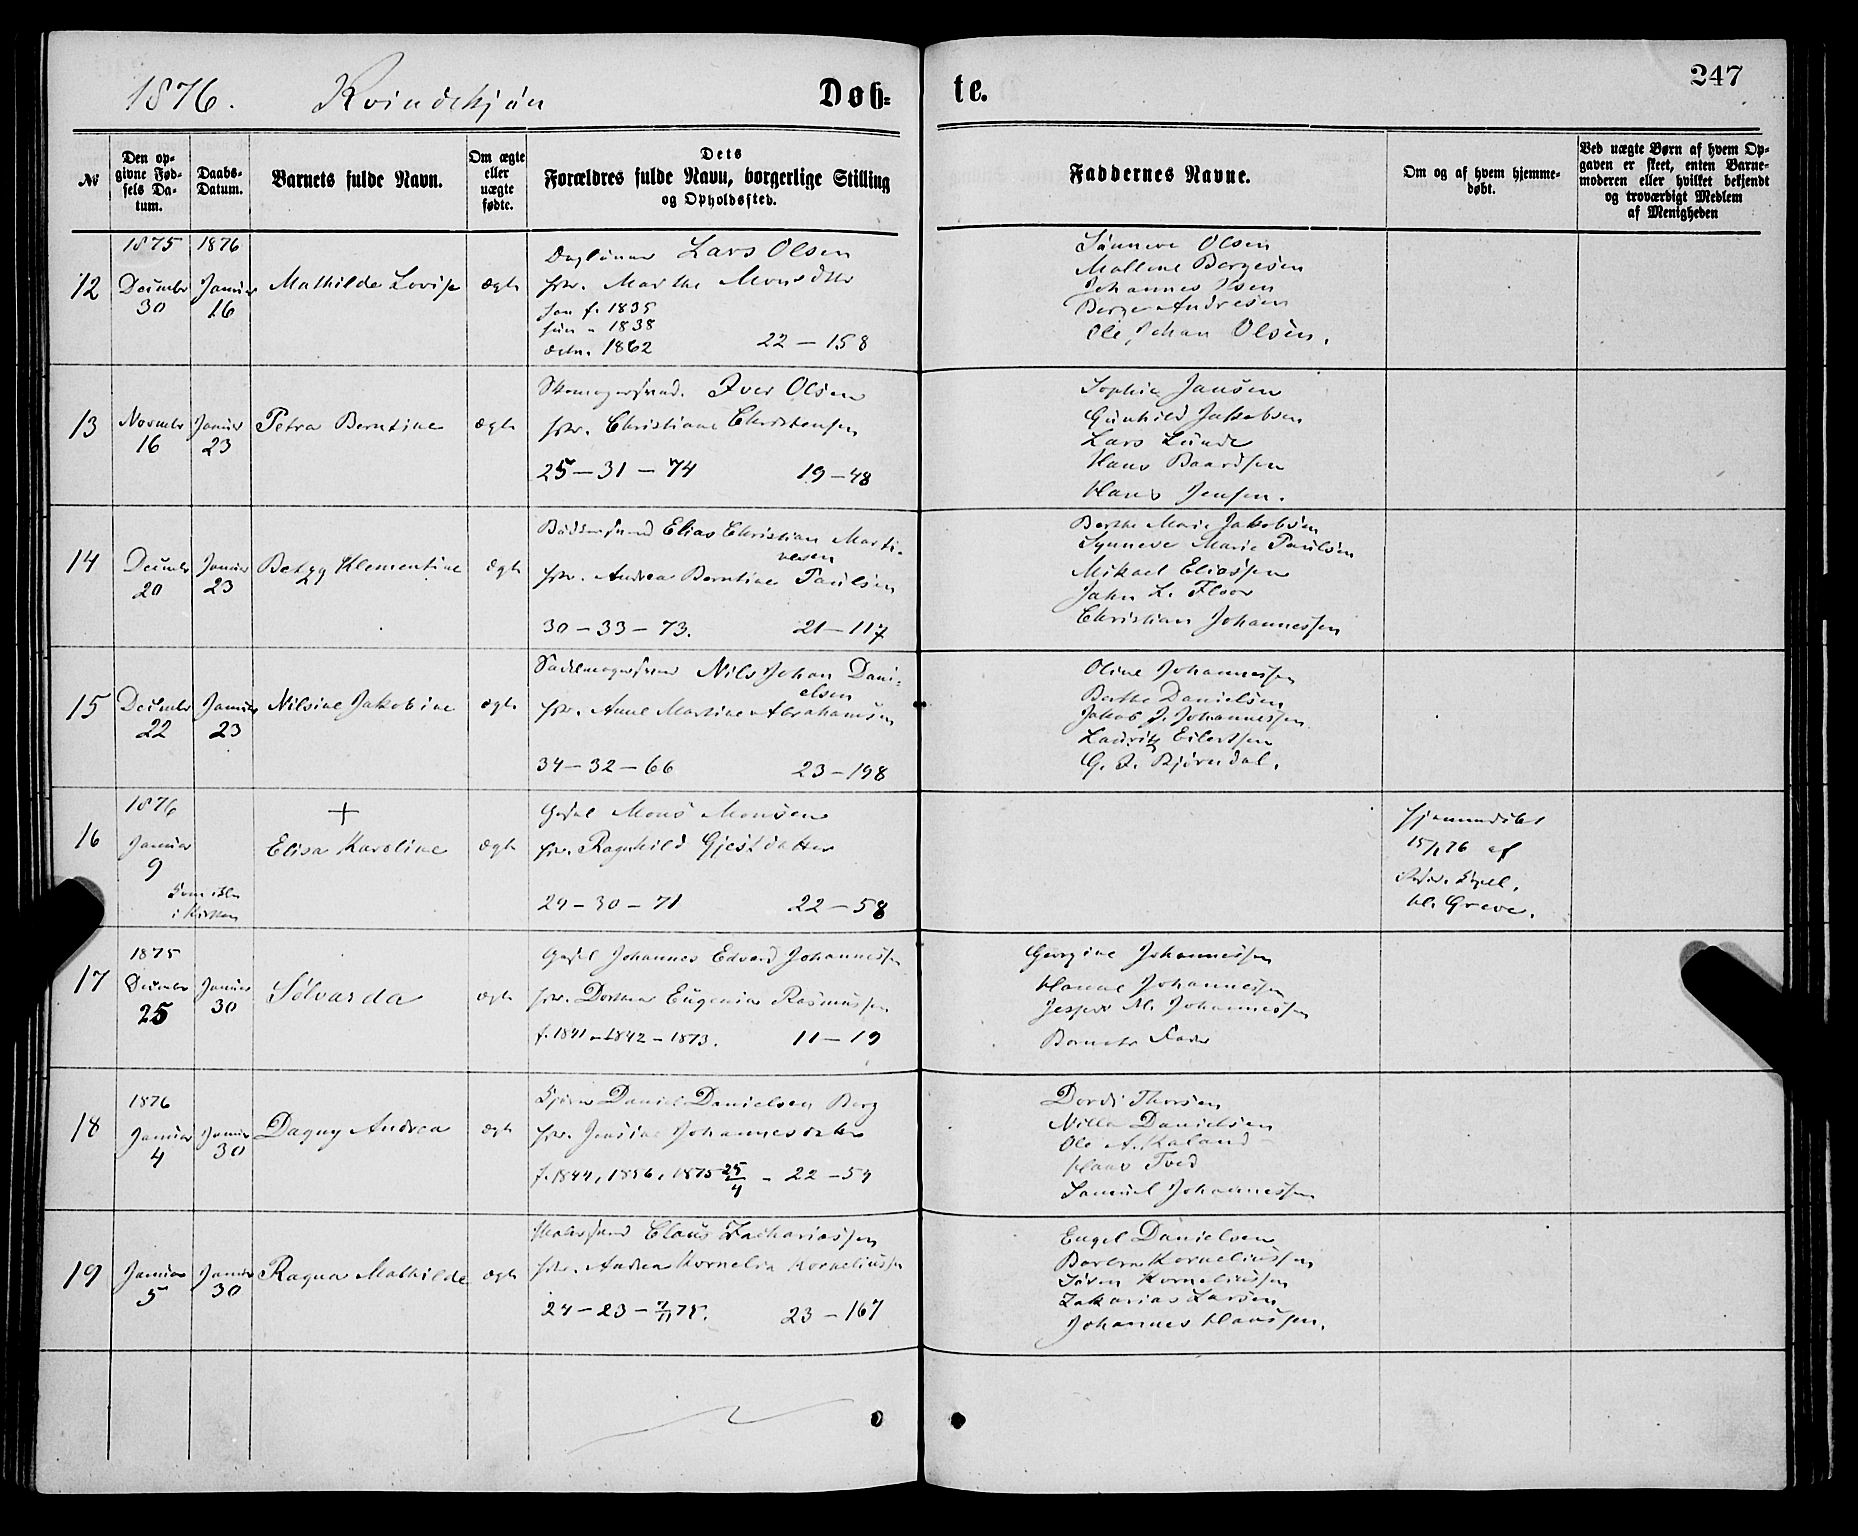 1876. Kvindekjøn
Døb-
te.
247
№
Den op-
givne Fød-
sels Da-
tum.
Daabs-
Datum.
Barnets fulde Navn.
Om ægte
eller
uægte
fødte.
Dets
Forældres fulde Navn, borgerlige Stilling
og Opholdssted.
Faddernes Navne.
Om og af hvem hjemme-
døbt.
Ved uægte Børn af hvem Op-
gaven er skeet, enten Barne-
moderen eller hvilket bekjendt
og troværdigt Medlem
af Menigheden
12
1875
December
30
1876
Januar
16
Mathilde Lovise
ægte
Daglønner Lars Olsen
Marthe Monsdtr
f. 1835
1838
1862
22 - 158
Sønneve Olsen
Mallene Børgesen
Johannes Olsen
Børge Andresen
Ole Johan Olsen.
13
November
16
Januar
23
Petra Berntine
ægte
Skomagersvend. Iver Olsen
Christiane Christensen
25 - 31 - 74
19 - 48
Sophie Jansen
Gunhild Jakobsen
Lars Lunde
Hans Baardsen
Hans Jensen.
14
December
20
Januar
23
Betzy Klementine
ægte
Bødkersvend Elias Christian Marti-
nesen
Andrea Berntine Paulsen
30 - 33 - 73.
21 - 117
Berthe Marie Jakobsen
Synneve Marie Paulsen
Mikael Eliassen
Jahn L. Floor
Christian Johannessen
15
December
22
Januar
23
Nilsine Jakobine
ægte
Sadelmagersvend Nils Johan Dani-
elsen
Anne Martine Abrahamsen
34 - 32 - 66
23 - 198
Oline Johannessen
Berthe Danielsen
Jakob J. Johannessen
Lauritz Eilertsen
G. J. Bjørndal.
16
1876
Januar
9
i Kirken
+
Elisa Karoline
ægte
Mons Monsen
Ragnhild Gjestdatter
29 - 30 - 71
22 - 58
Hjemmedøbt
15/1 76 af
Greve.
17
1875
December
25
Januar
30
Selvarda
ægte
Johannes Edvard Johannessen
Dorthea Eugenia Rasmussen
f. 1841 - 1842 - 1873.
11 - 19
Georgine Johannessen
Hanne Johannessen
Jesper M. Johannessen
Barnets Fader
18
1876
Januar
4
Januar
30
Dagny Andrea
ægte
Daniel Danielsen Berg
Jensine Johannesdatter
f. 1844, 1856, 1875 25/4 - 22 - 54
Dordi Thorsen
Nille Danielsen
Ole A. Kaland
Hans Tved
Samuel Johannessen
19
Januar
5
Januar
30
Ragna Mathilde
ægte
Malersvend Claus Zachariassen
Andrea Kornelia Korneliussen
24 - 23 - 7/11 75.
23 - 167
Engel Danielsen
Barbra Korneliussen
Søren Korneliussen
Zakarias Larsen
Johannes Hanssen.